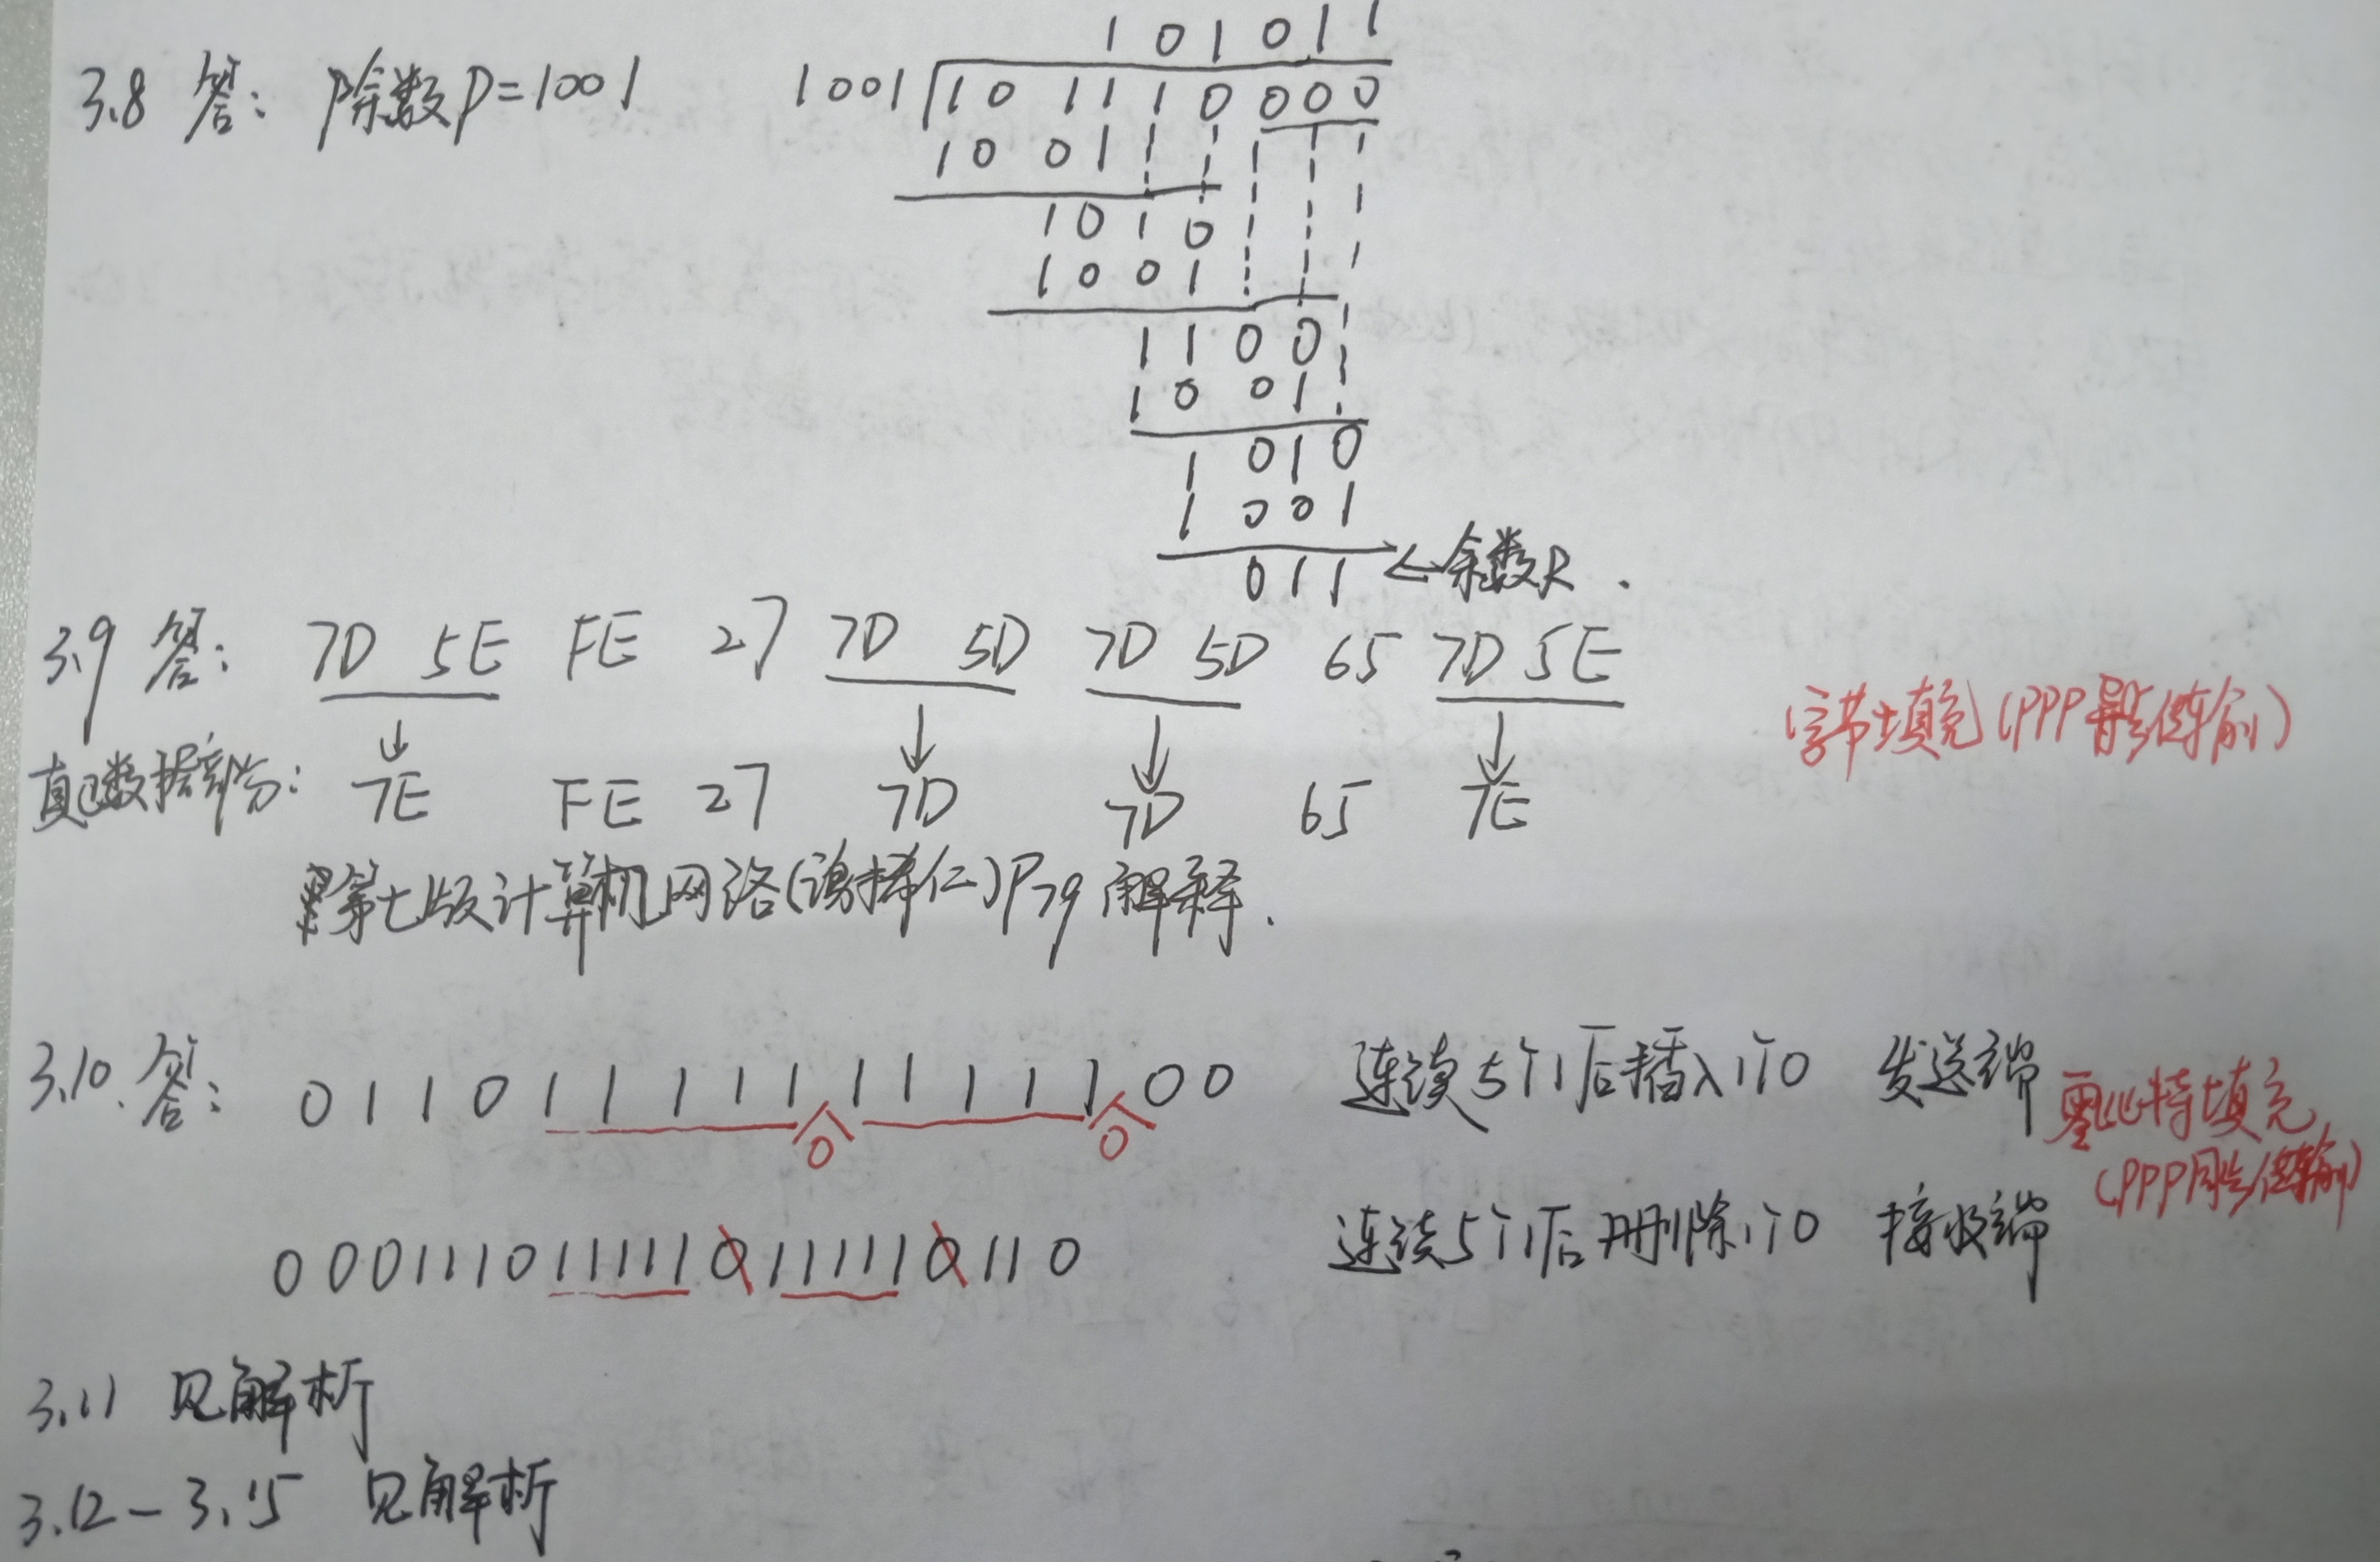 3.8 答: 除数P=1001
101011
1001 101110000
1001
1010
1001
1100
1001
1010
1001
011 ←余数R.
3.9 答: 7D 5E FE 27 7D 5D 7D 5D 65 7D 5E
字节填充(PPP异步传输)
真正数据部分: 7E FE 27 7D 7D 65 7E
第七版计算机网络(谢希仁)P79 解释.
3.10. 答: 0110111111111100 连续5个1后插入1个0 发送端
0 0
零比特填充
(PPP同步传输)
0001110111110111110110 连续5个1后删除1个0 接收端
3.11 见解析
3.12-3.15 见解析